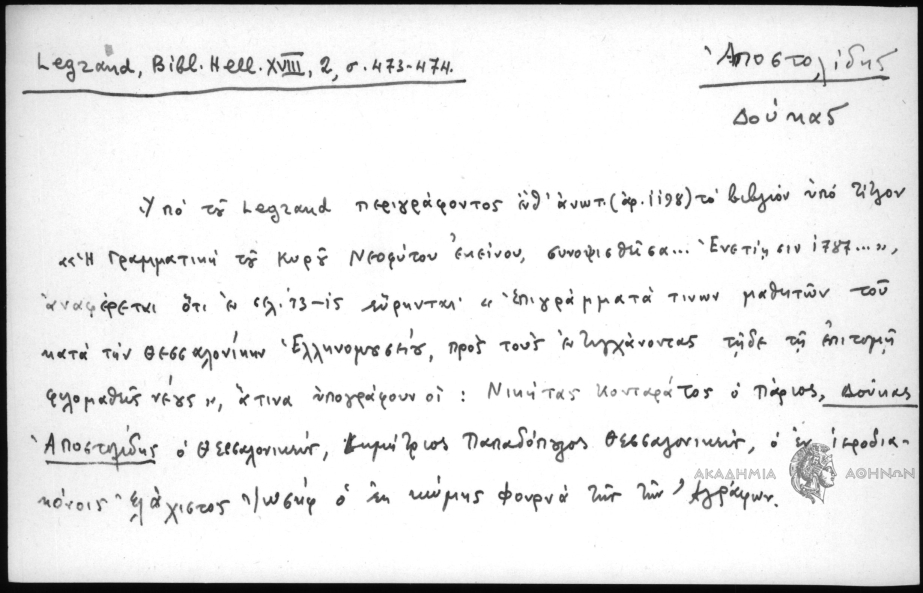 Legrand, Bibl. Hell. XVIII, 2, σ. 473-474.
Ἀποστολίδης
Δούκας
Ὑπό τοῦ Legrand περιγράφοντος ἐνθ' ἀνωτ. (ἀρ. 1198) τό βιβλίον ὑπό τίτλον
«Ἡ Γραμματική τοῦ Κυροῦ Νεοφύτου ἐκείνου, συνοψισθεῖσα... Ἐνετίῃσιν 1787...»,
ἀναφέρεται ὅτι ἐν σελ. 13-15 εὕρηνται· «Ἐπιγράμματά τινων μαθητῶν τοῦ
κατά τήν Θεσσαλονίκην Ἑλληνομουσείου, πρός τούς ἐντυγχάνοντας τῇδε τῇ ἐπιτομῇ
φιλομαθεῖς νέους», ἅτινα ὑπογράφουν οἱ : Νικήτας Κονταράτος ὁ Πάριος, Δούκας
Ἀποστολίδης ὁ Θεσσαλονικεύς, Δημήτριος Παπαδόπουλος Θεσσαλονικεύς, ὁ ἐν ἱεροδια-
κόνοις ἐλάχιστος Ἰωσήφ ὁ ἐκ κώμης Φουρνᾶ τῆς τῶν Ἀγράφων.
ΑΚΑΔΗΜΙΑ ΑΘΗΝΩΝ